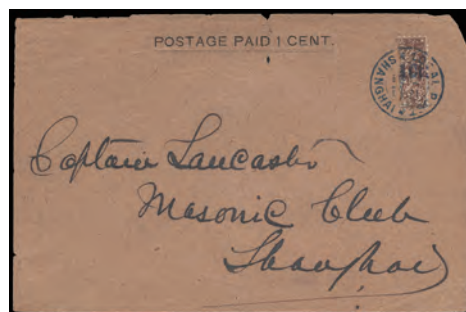 POSTAGE PAID 1 CENT.
SHANGHAI
Captain Lancaster
Masonic Club
Shanghai